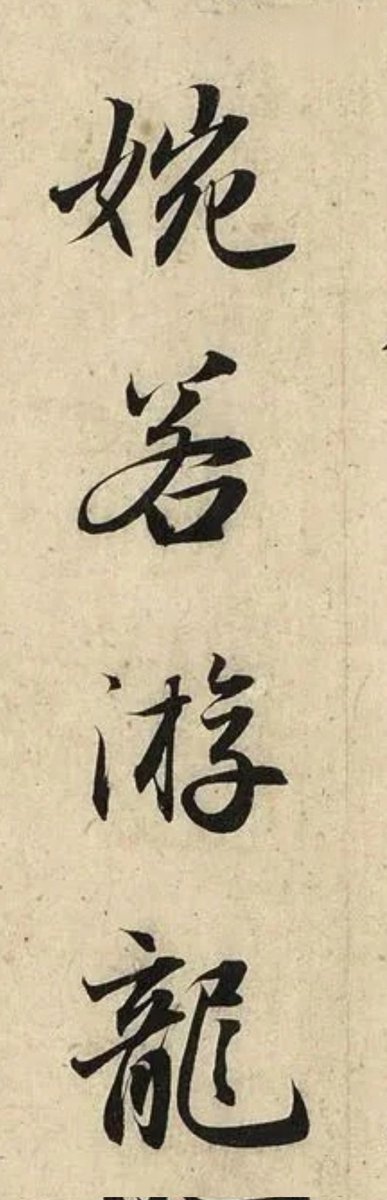 婉若游龍